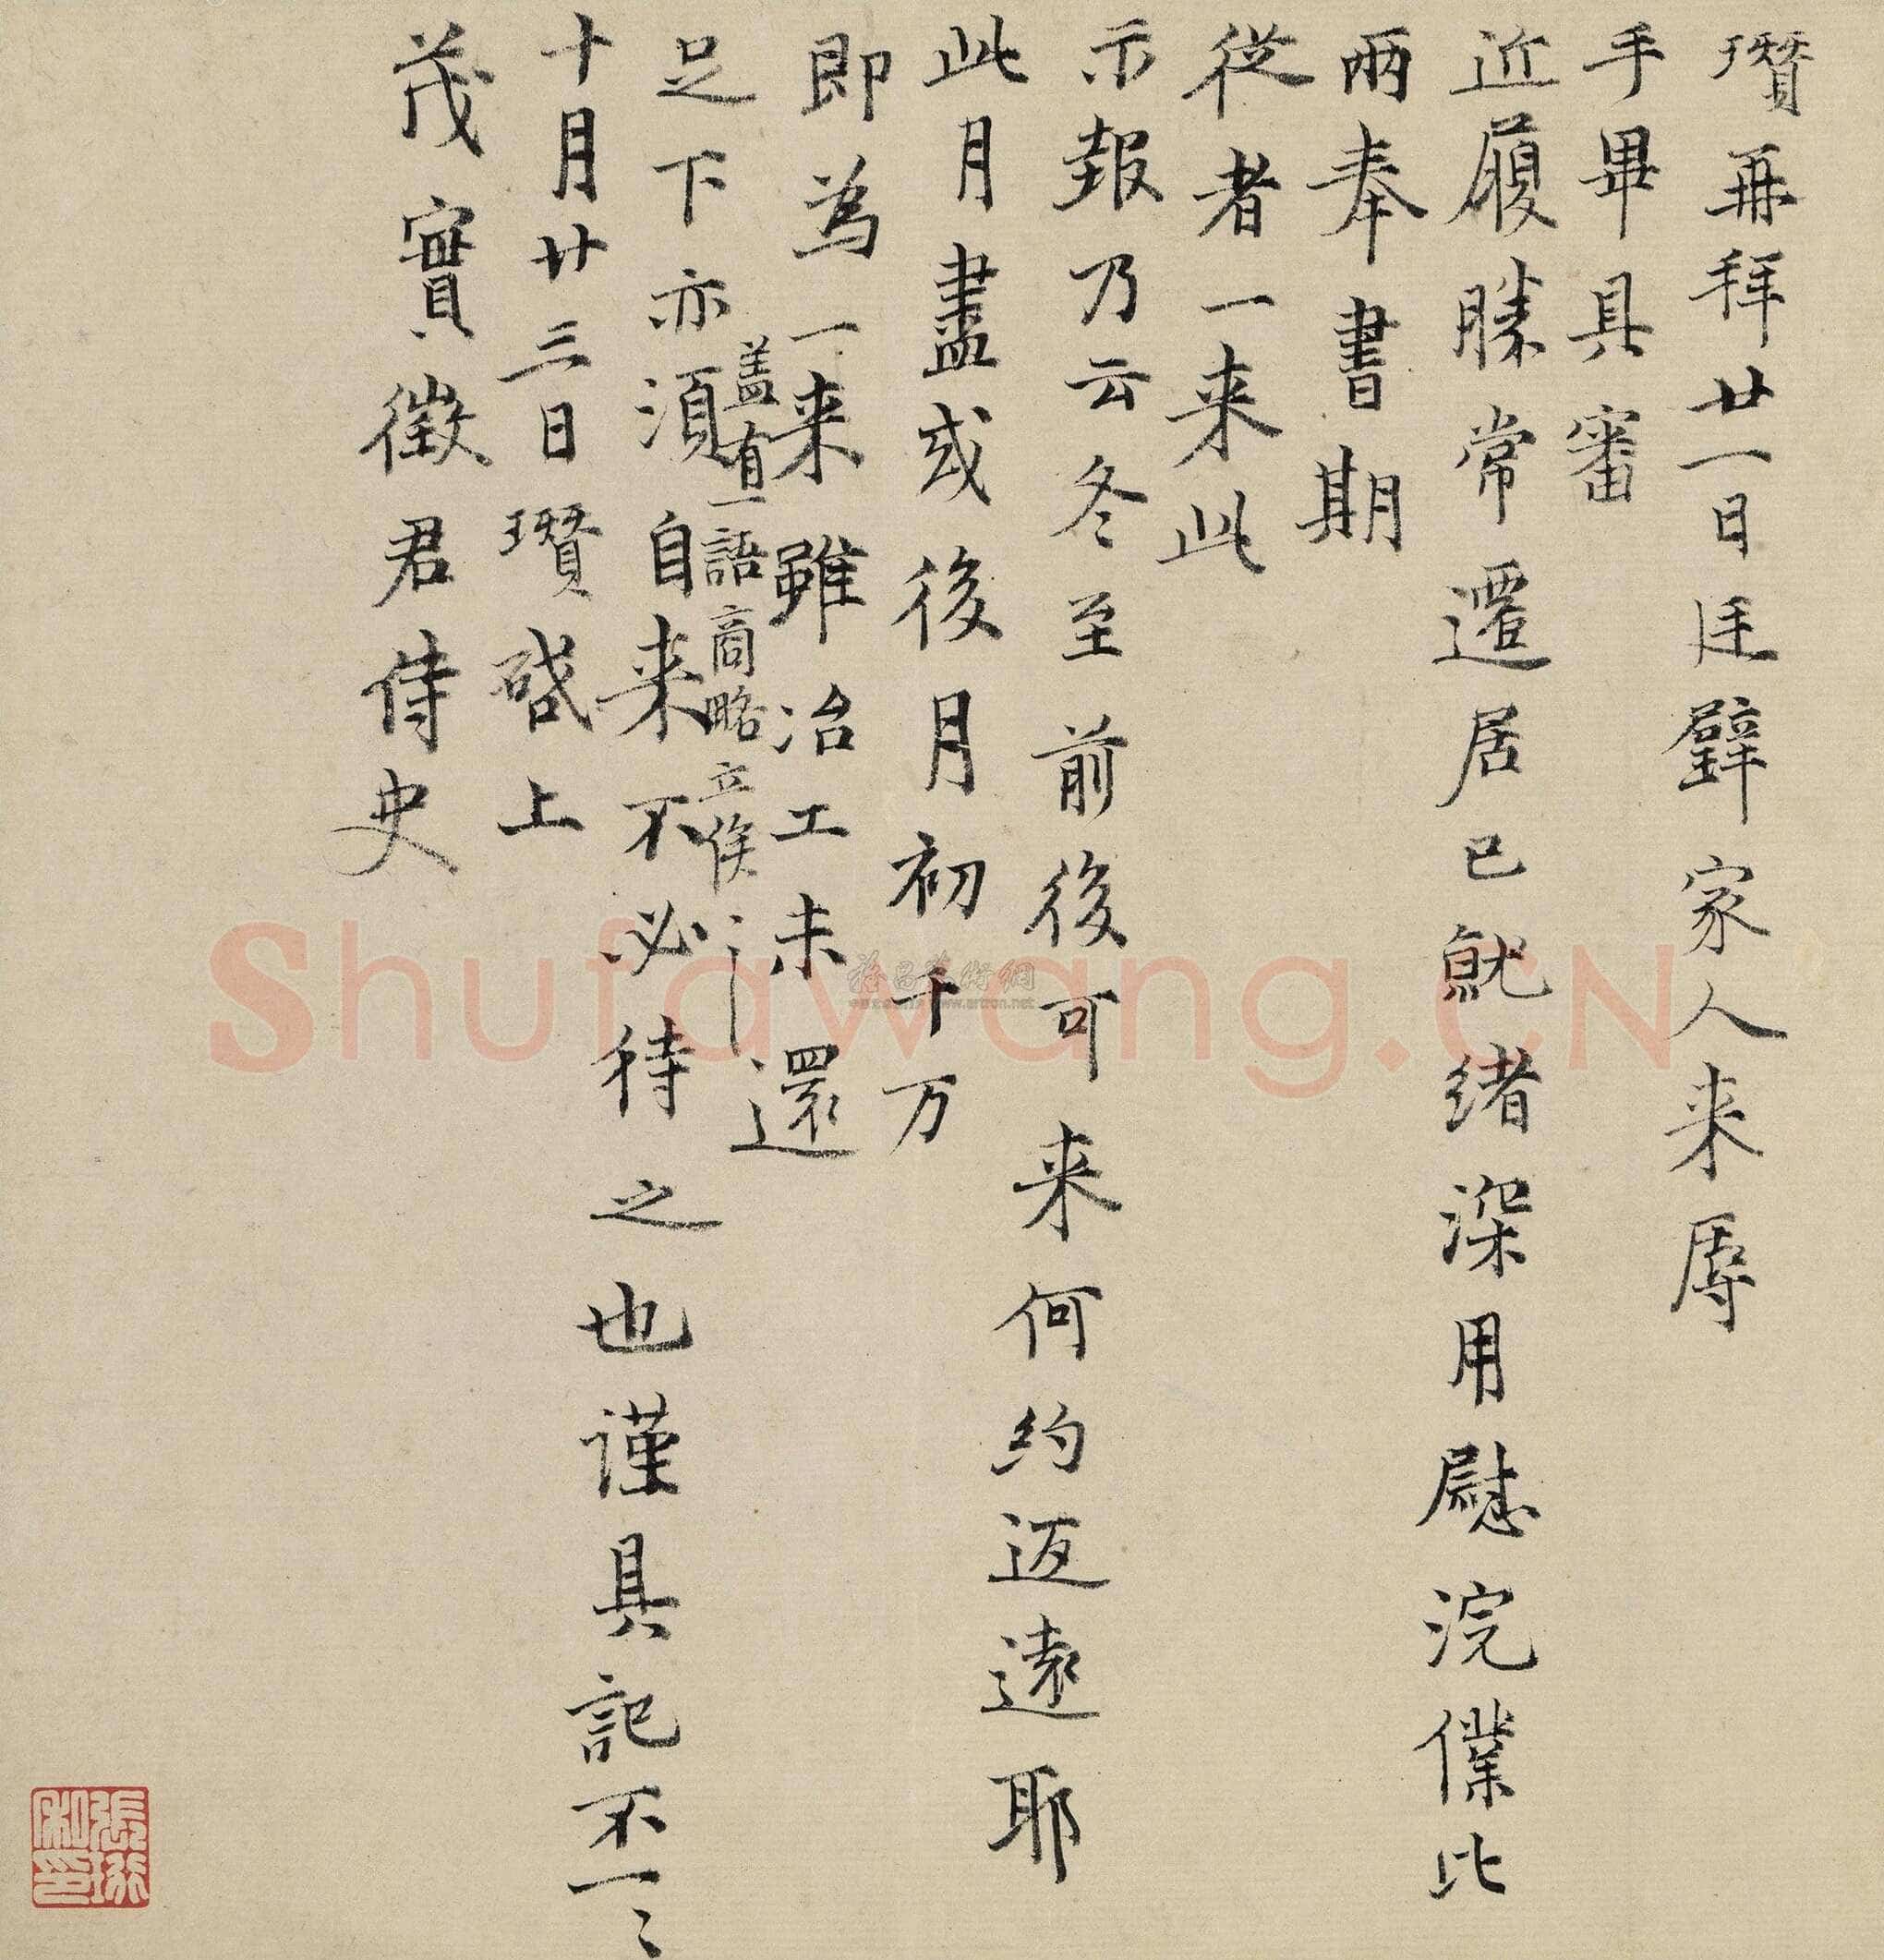 瓚再拜廿一日廷璧家人来辱
手畢具審
近履勝常遷居已就緒深用慰浣僕比
兩奉書期
從者一来此
示報乃云冬至前後可来何約迺遠耶
此月盡或後月初千万
即為一来雖冶工未還
盖有一語商略立俟〻
足下亦須自来不必待之也謹具記不一〻
十月廿三日瓚啓上
茂實徵君侍史
張珩私印
Shufawang.CN
www.artron.net